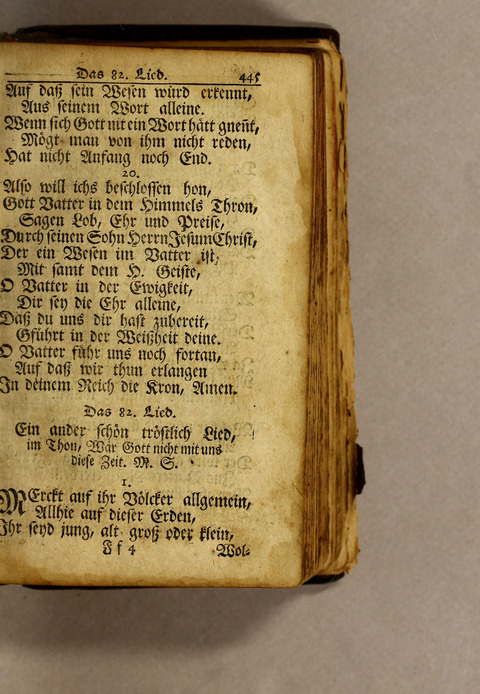 Das 82. Lied. 445
Auf daß sein Wesen würd erkennt,
Aus seinem Wort alleine.
Wenn sich Gott nit ein Wort hätt gneñt,
Mögt man von ihm nicht reden,
Hat nicht Anfang noch End.
20.
Also will ichs beschlossen hon,
Gott Vatter in dem Himmels Thron,
Sagen Lob, Ehr und Preise,
Durch seinen Sohn Herrn Jesum Christ,
Der ein Wesen im Vatter ist,
Mit samt dem H. Geiste,
O Vatter in der Ewigkeit,
Dir sey die Ehr alleine,
Daß du uns dir hast zubereit,
Gführt in der Weißheit deine.
O Vatter führ uns noch fortan,
Auf daß wir thun erlangen
In deinem Reich die Kron, Amen.
Das 82. Lied.
Ein ander schön tröstlich Lied,
im Thon, Wär Gott nicht mit uns
diese Zeit. M. S.
1.
MErckt auf ihr Völcker allgemein,
Allhie auf dieser Erden,
Ihr seyd jung, alt groß oder klein,
F f 4 Wol-